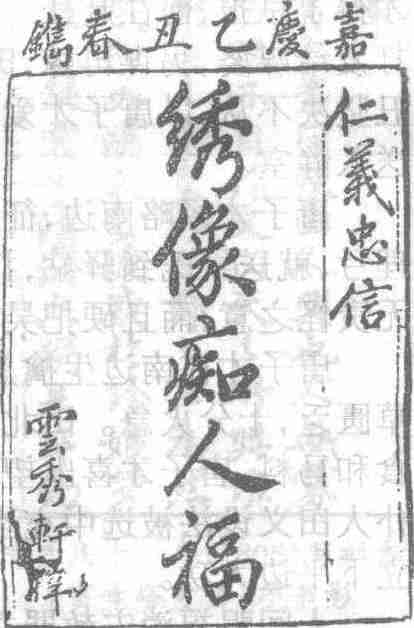 嘉慶乙丑春鐫
仁義忠信
綉像痴人福
雲秀軒梓